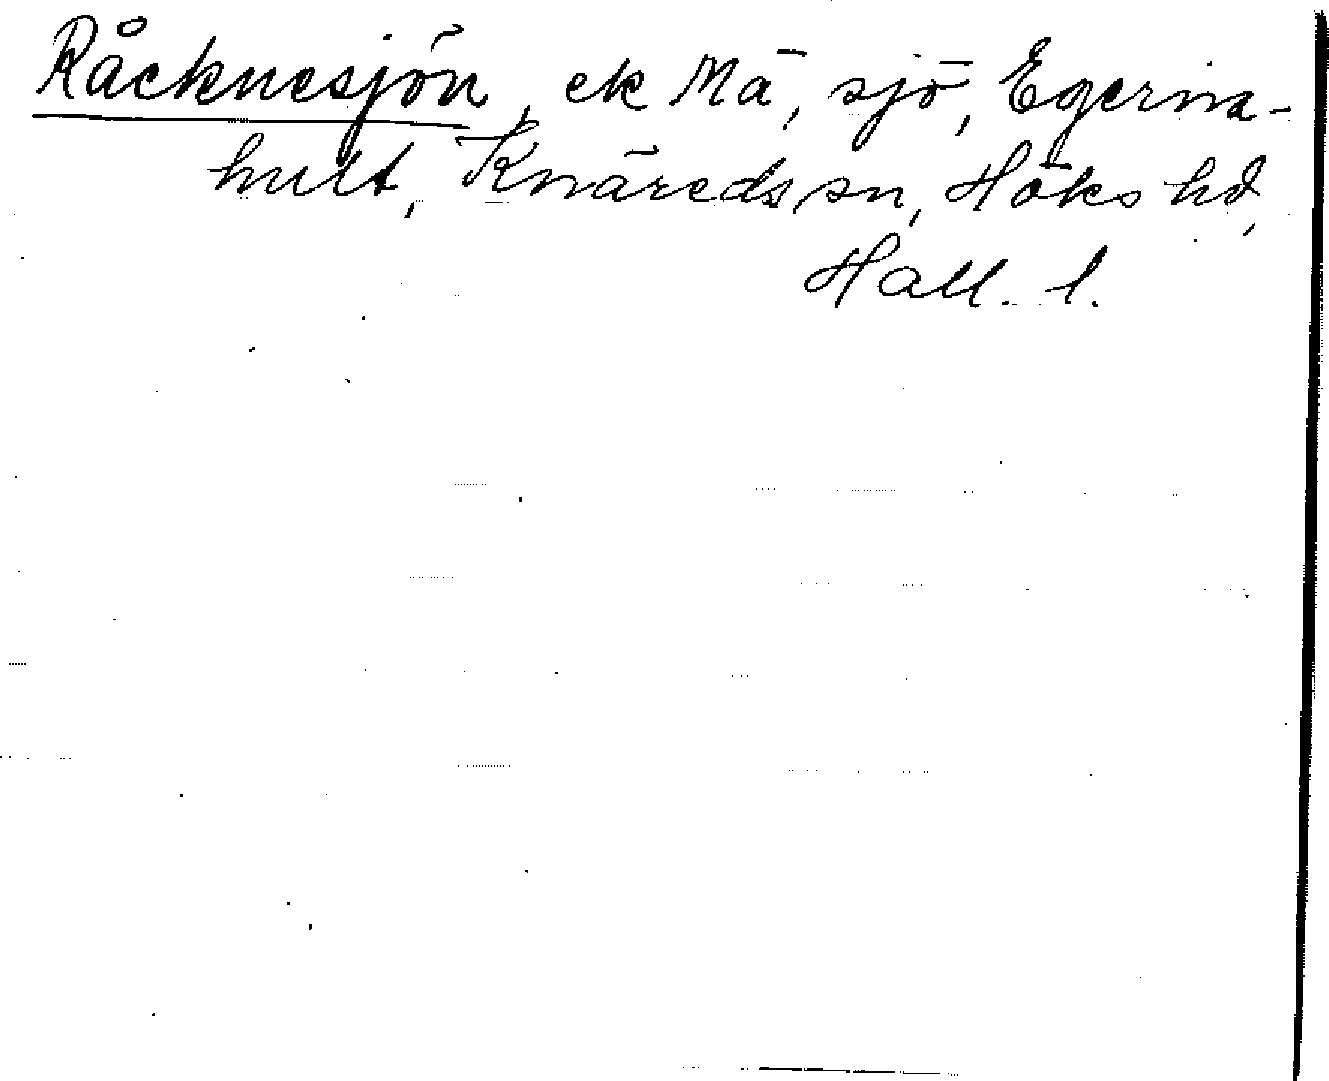 Råcknesjön, ek Mä, sjö, Egerna-
hult, Knäreds sn, Höks hd,
Hall. l.